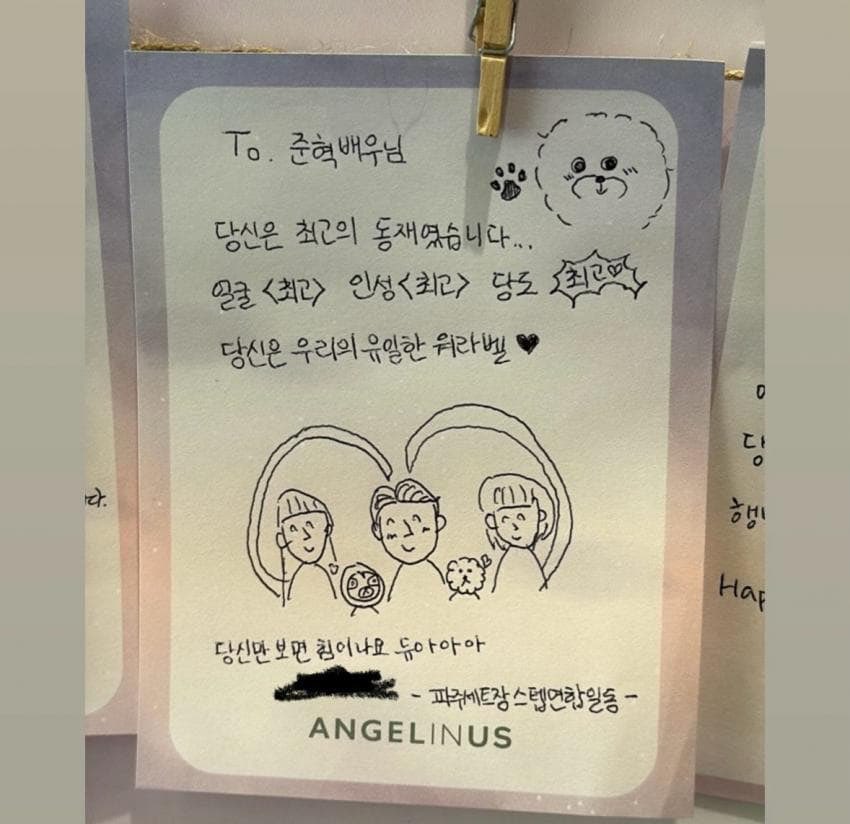 To. 준혁배우님
당신은 최고의 동재였습니다...
얼굴 <최고> 인성 <최고> 당도 최고♡
당신은 우리의 유일한 워라벨 ♥
당신만 보면 힘이나요 듀아아아
- 파주세트장 스텝연합일동 -
ANGELINUS
다.
당
행
Hap